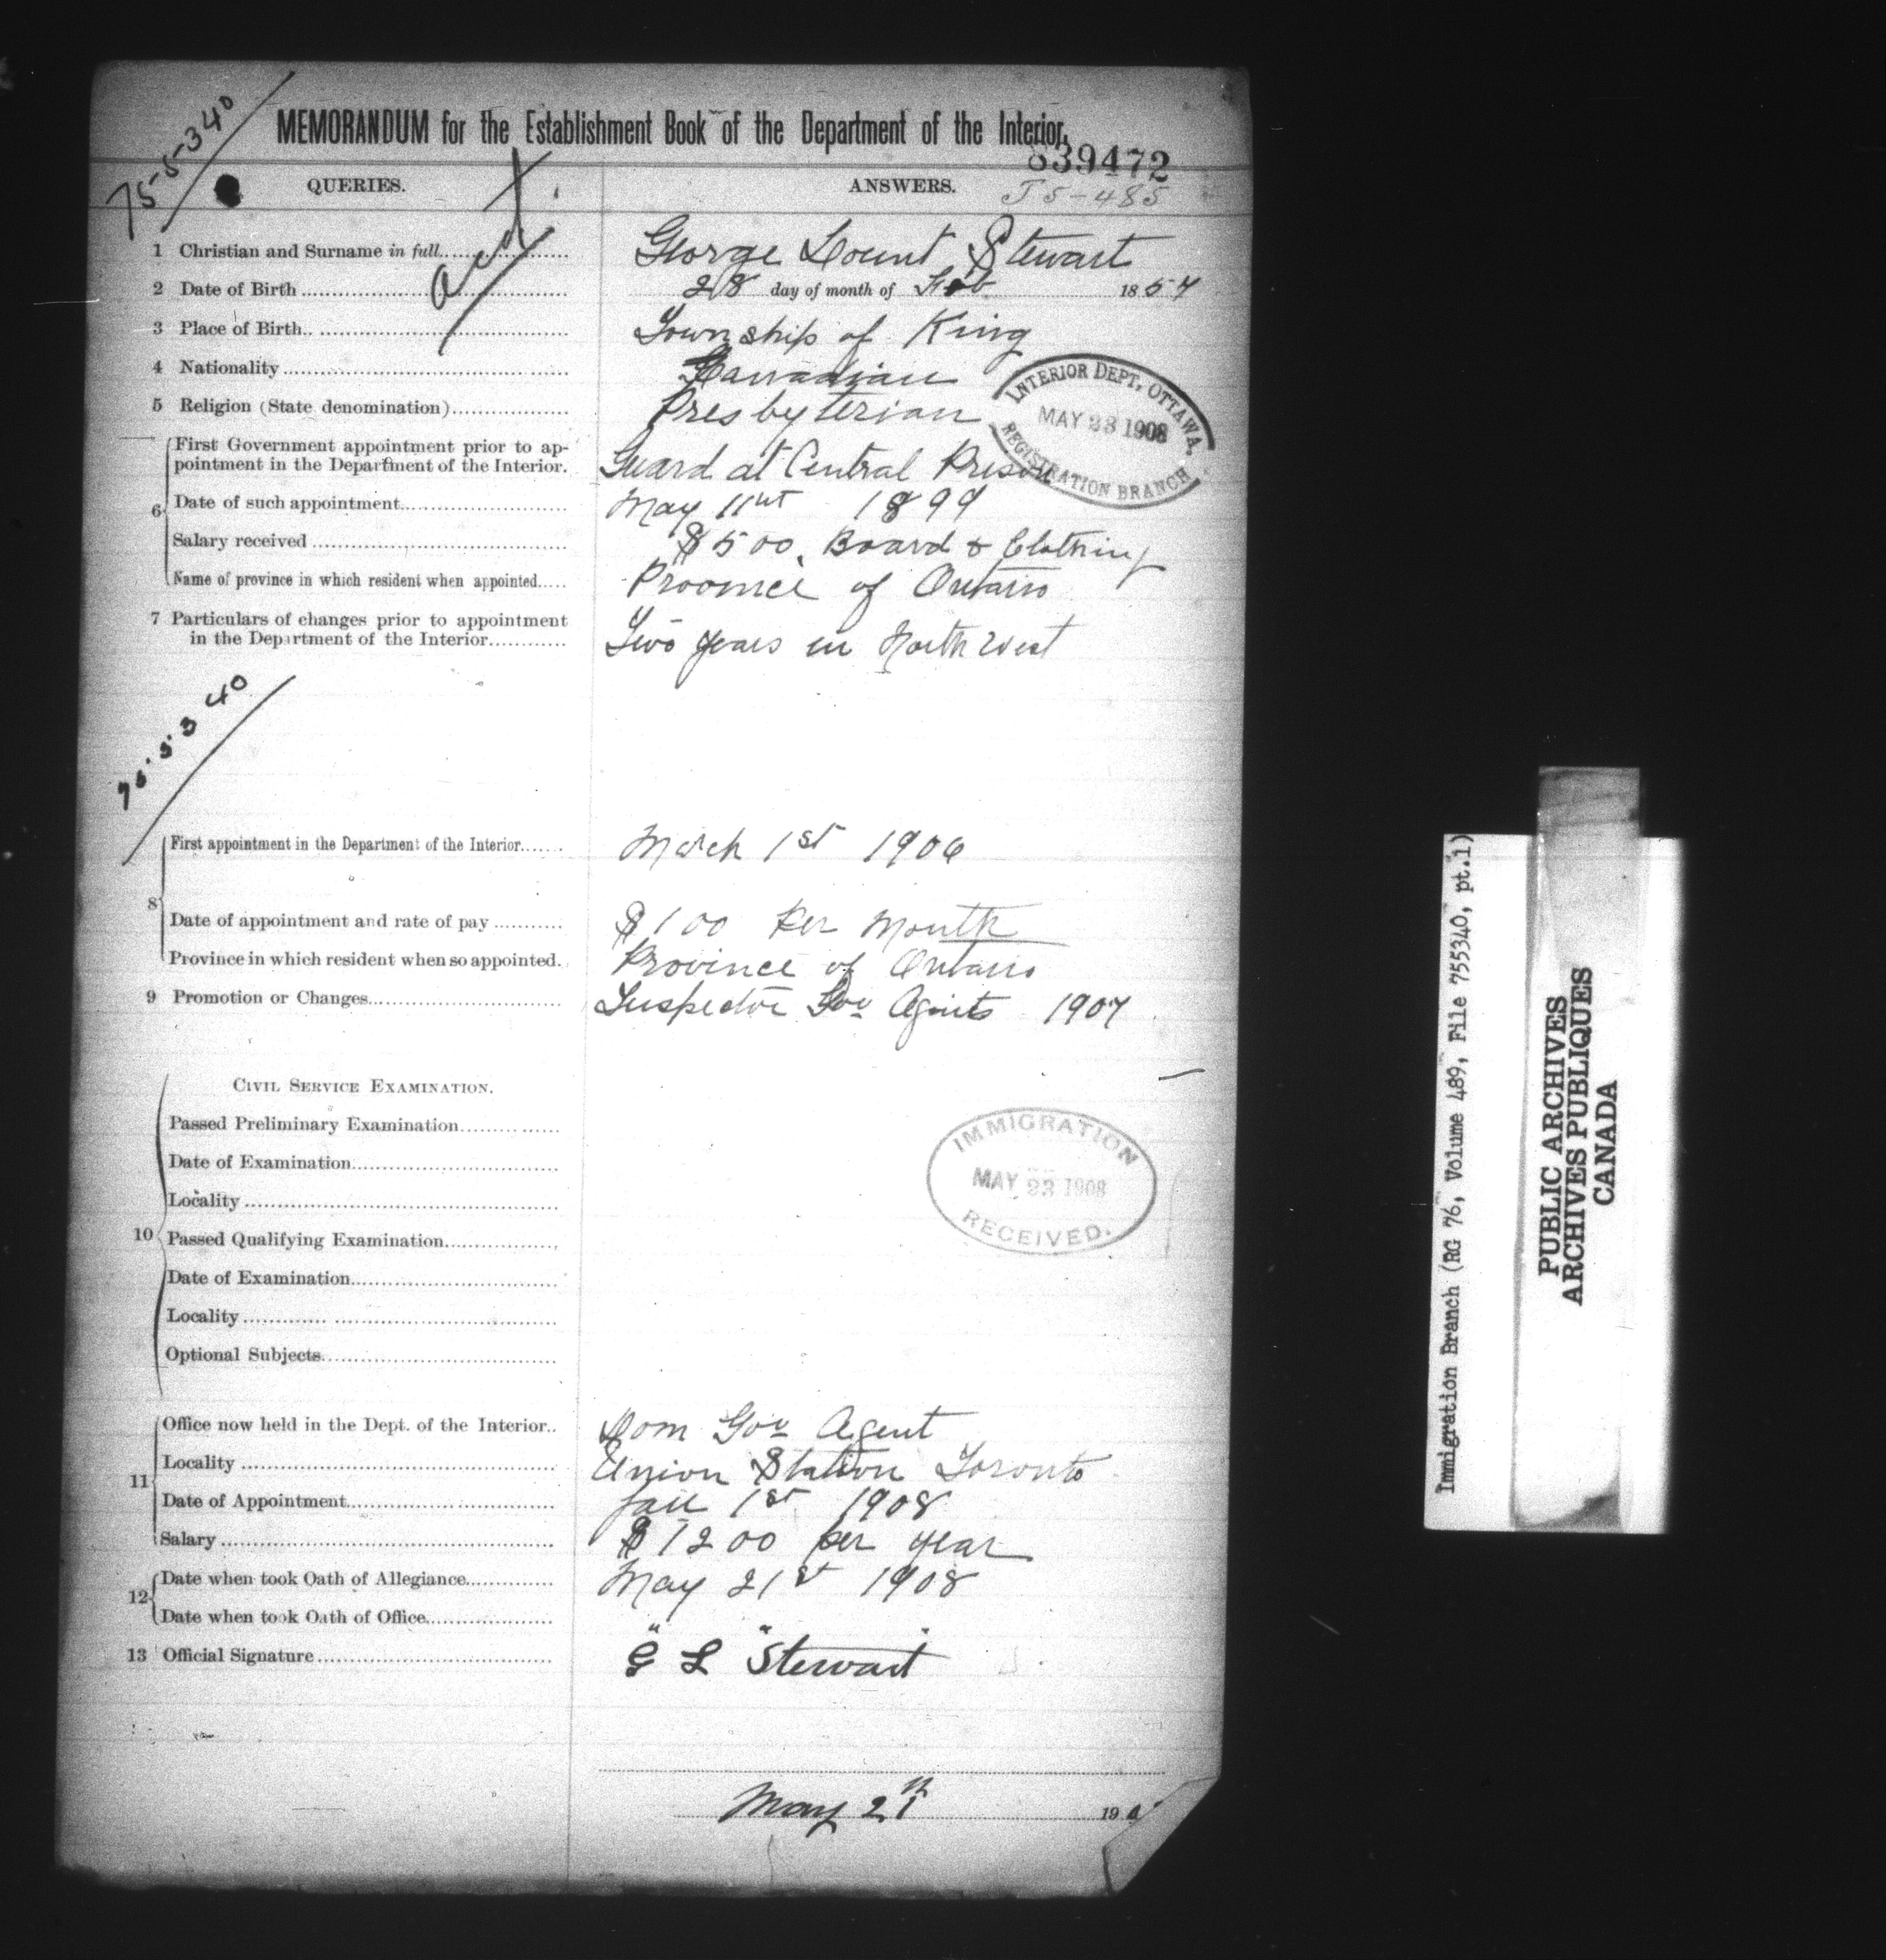 75-5-340
MEMORANDUM for the Establishment Book of the Department of the Interior.
839472
QUERIES.
ANSWERS.
75-485
1 Christian and Surname in full
George Lount Stewart
2 Date of Birth
28 day of month of Feb 1857
3 Place of Birth
Township of King
4 Nationality
Canadian
5 Religion (State denomination)
Presbyterian
INTERIOR DEPT, OTTAWA.
MAY 23 1908
REGISTRATION BRANCH
6 First Government appointment prior to ap-
pointment in the Department of the Interior.
Guard at Central Prison
Date of such appointment
May 11nt 1899
Salary received
$500. Board & Clothing
Name of province in which resident when appointed
Province of Ontario
7 Particulars of changes prior to appointment
in the Department of the Interior
Two years in North West
75·5·3 40
8 First appointment in the Department of the Interior
March 1st 1906
Date of appointment and rate of pay
$100 per month
Province in which resident when so appointed.
Province of Ontario
9 Promotion or Changes
Inspector Gov Agents 1907
CIVIL SERVICE EXAMINATION.
10 Passed Preliminary Examination
Date of Examination
Locality
Passed Qualifying Examination
Date of Examination
Locality
Optional Subjects
IMMIGRATION
MAY 23 1908
RECEIVED.
11 Office now held in the Dept. of the Interior
Dom Gov Agent
Locality
Union Station Toronto
Date of Appointment
Jan 1st 1908
Salary
$1200 per year
12 Date when took Oath of Allegiance
May 21st 1908
Date when took Oath of Office
" " "
13 Official Signature
G L Stewart
May 21 190
Immigration Branch (RG 76, Volume 489, File 755340, pt.1)
PUBLIC ARCHIVES
ARCHIVES PUBLIQUES
CANADA